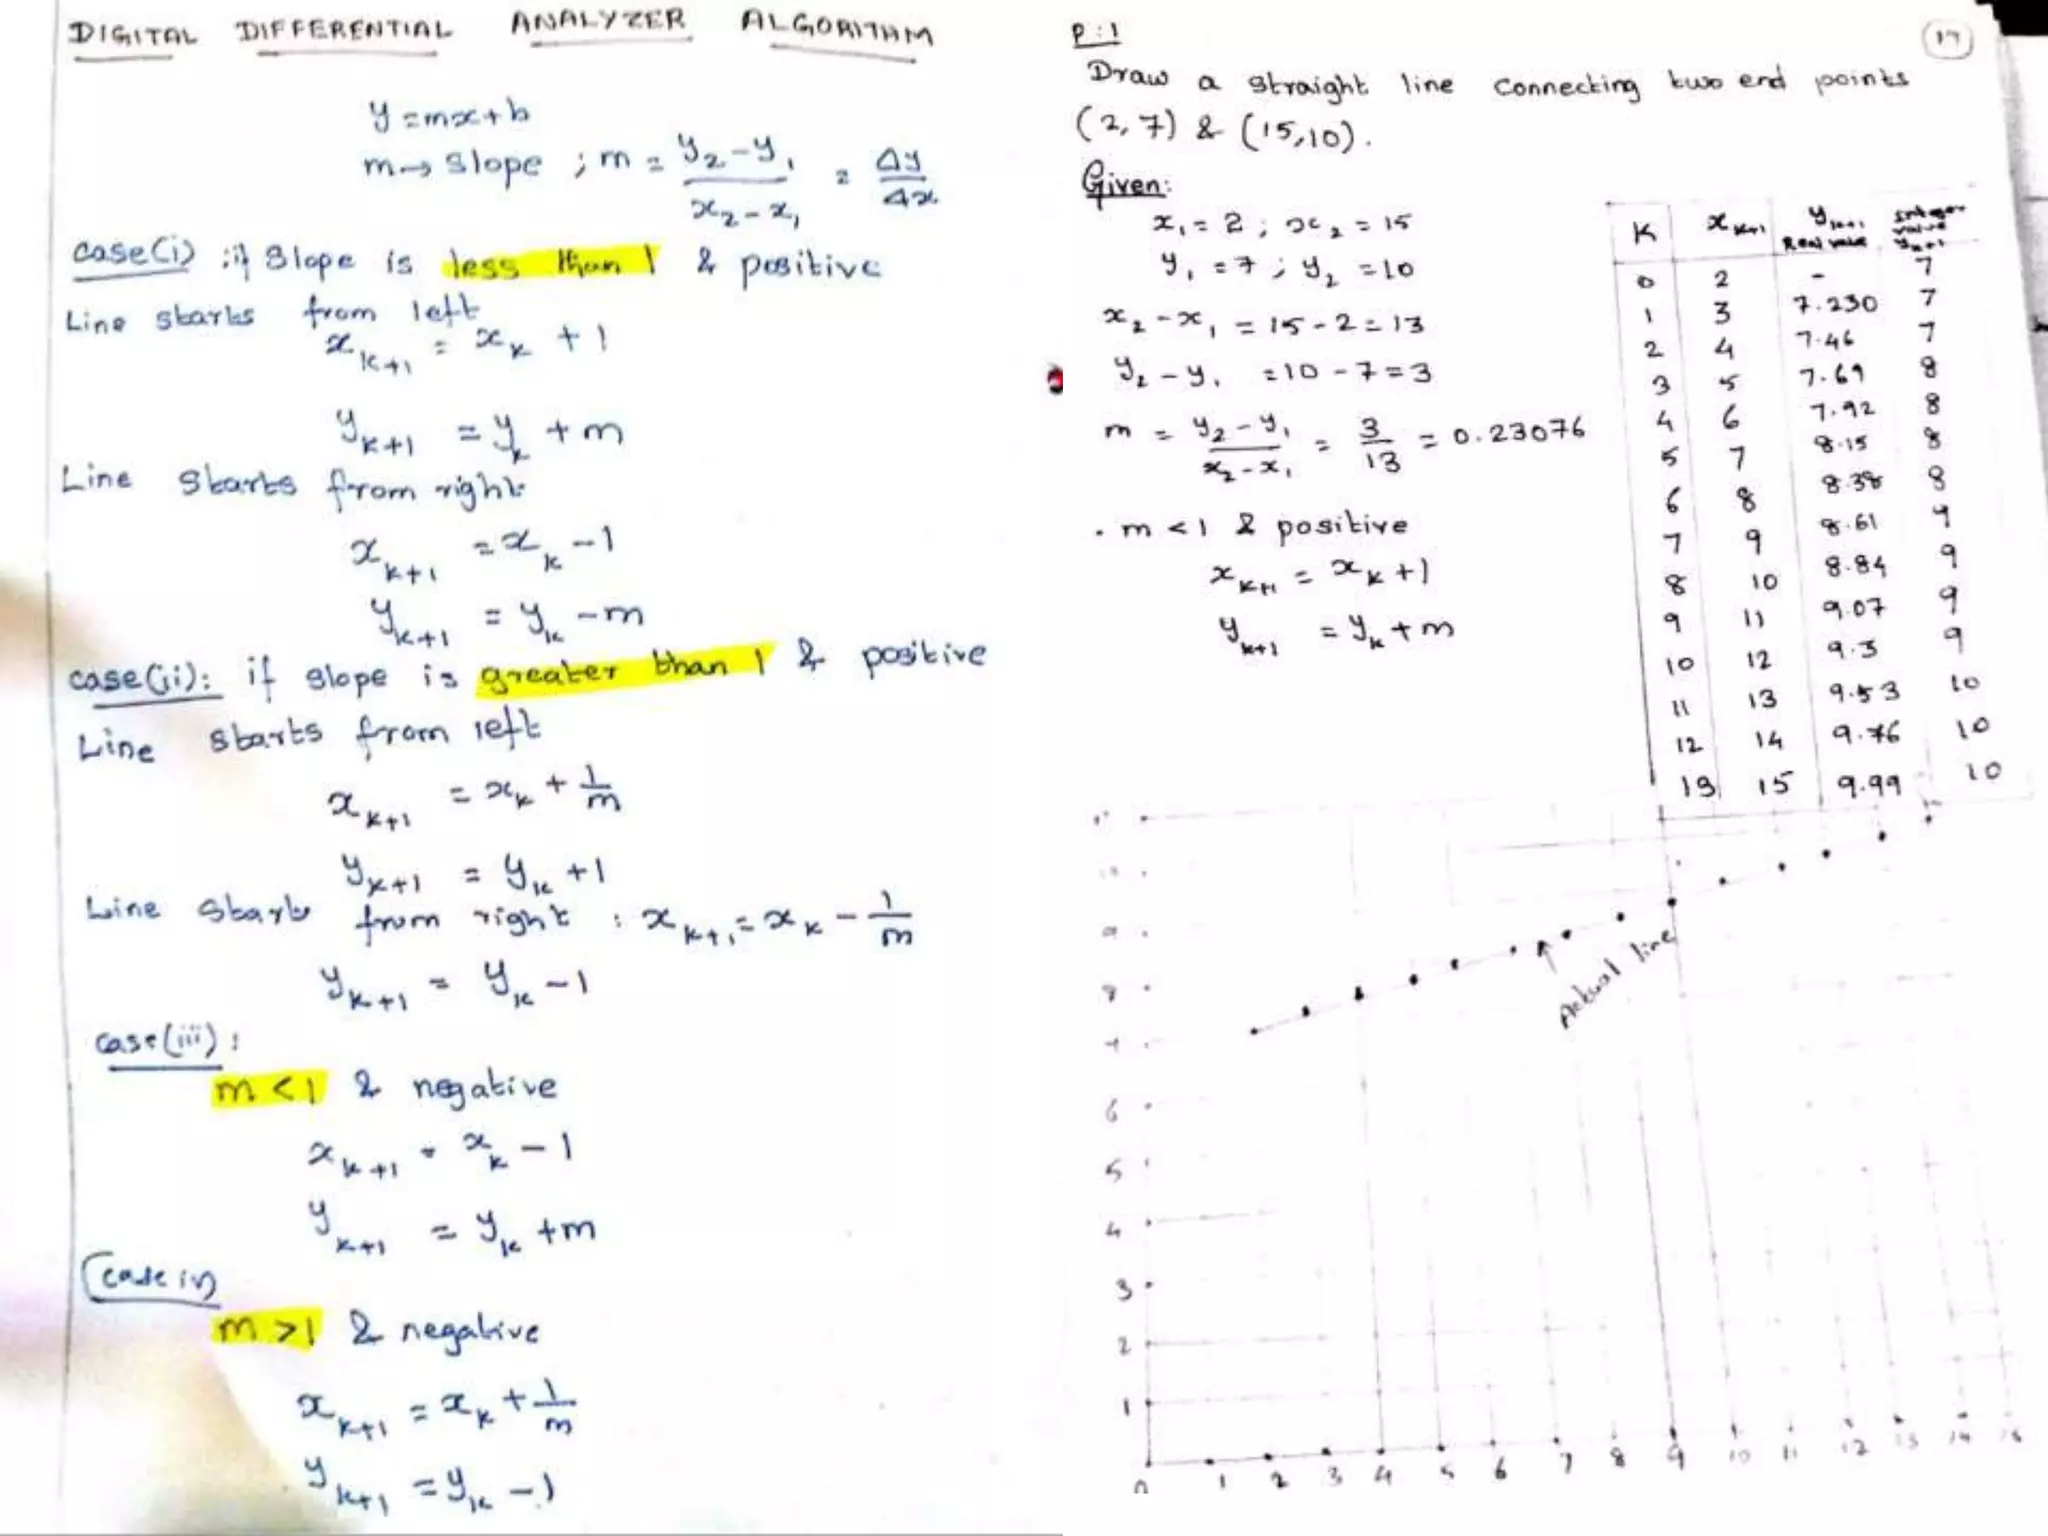 DIGITAL DIFFERENTIAL ANALYZER ALGORITHM
y = mx + b
m → slope ; m = y₂ - y₁ / x₂ - x₁ = Δy / Δx
case(i) : if slope is less than 1 & positive
Line starts from left
xₖ₊₁ = xₖ + 1
yₖ₊₁ = yₖ + m
Line starts from right
xₖ₊₁ = xₖ - 1
yₖ₊₁ = yₖ - m
case(ii): if slope is greater than 1 & positive
Line starts from left
xₖ₊₁ = xₖ + 1/m
yₖ₊₁ = yₖ + 1
Line starts from right : xₖ₊₁ = xₖ - 1/m
yₖ₊₁ = yₖ - 1
case(iii) :
m < 1 & negative
xₖ₊₁ = xₖ - 1
yₖ₊₁ = yₖ + m
case iv)
m > 1 & negative
xₖ₊₁ = xₖ + 1/m
yₖ₊₁ = yₖ - 1
P:1
Draw a straight line connecting two end points
(2, 7) & (15, 10).
Given:
x₁ = 2 ; x₂ = 15
y₁ = 7 ; y₂ = 10
x₂ - x₁ = 15 - 2 = 13
y₂ - y₁ = 10 - 7 = 3
m = y₂ - y₁ / x₂ - x₁ = 3/13 = 0.23076
. m < 1 & positive
xₖ₊₁ = xₖ + 1
yₖ₊₁ = yₖ + m
K xₖ₊₁ yₖ₊₁ Real value Integer value yₖ₊₁
0 2 - 7
1 3 7.230 7
2 4 7.46 7
3 5 7.69 8
4 6 7.92 8
5 7 8.15 8
6 8 8.38 8
7 9 8.61 9
8 10 8.84 9
9 11 9.07 9
10 12 9.3 9
11 13 9.53 10
12 14 9.76 10
13 15 9.99 10
10
9
8
7
Actual line
6
5
4
3
2
1
0 1 2 3 4 5 6 7 8 9 10 11 12 13 14 15